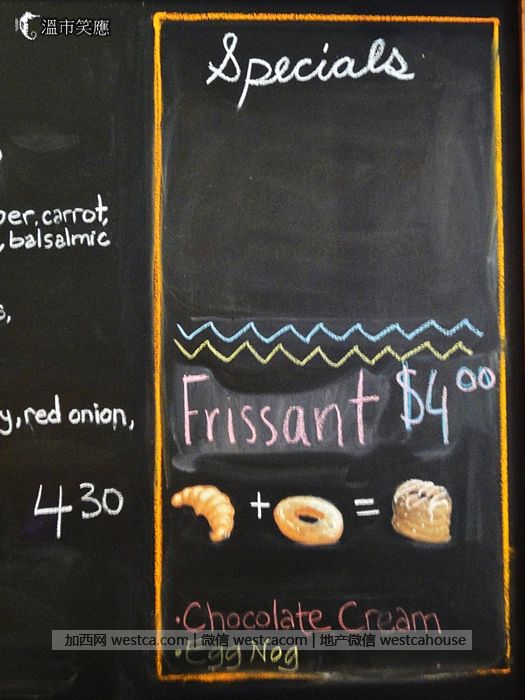 溫市笑應
Specials
per, carrot,
, balsalmic
s,
y, red onion,
430
Frissant $4.00
+ =
·Chocolate Cream
·Egg Nog
加西网 westca.com | 微信 westcacom | 地产微信 westcahouse